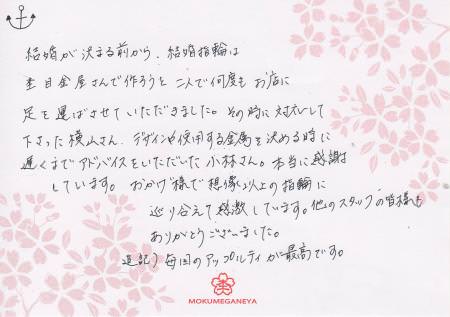 結婚が決まる前から、結婚指輪は
杢目金屋さんで作ろうと二人で何度もお店に
足を運ばさせていただきました。その時に対応して
下さった横山さん、デザインや使用する金属を決める時に
遅くまでアドバイスをいただいた小林さん。本当に感謝
しています。おかげ様で想像以上の指輪に
巡り合えて感激しています。他のスタッフの皆様も
ありがとうございました。
追記) 毎回のアップルティが最高です。
MOKUMEGANEYA